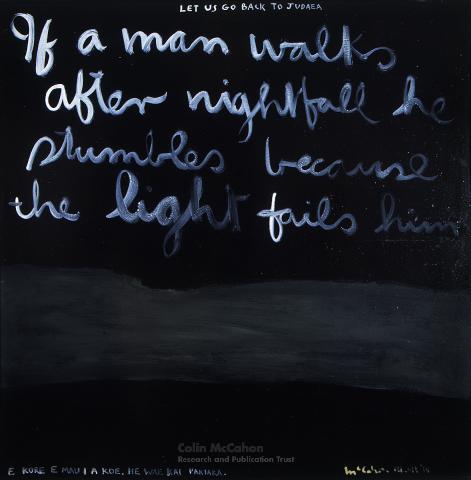 LET US GO BACK TO JUDAEA
If a man walks
after nightfall he
stumbles because
the light fails him
Colin McCahon
Research and Publication Trust
E KORE E MAU I A KOE, HE WAE KAI PAKIAKA.
McCahon